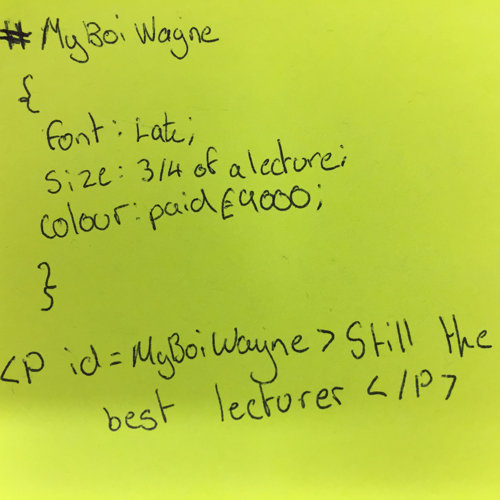 #MyBoiWagne
{
font: Late;
size: 3/4 of a lecture;
colour: paid £9000;
}
<p id=MyBoiWayne> Still the
best lecturer </p>